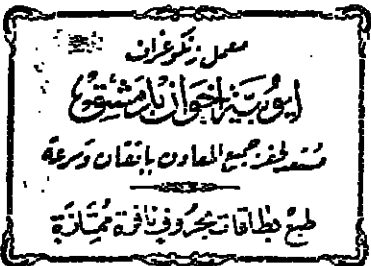 معمل زنكوغراف
ايوبية اخوان بدمشق
مستعد لحفر جميع المعادن باتقان وسرعة
طبع بطاقات بحروف نافرة ممتازة